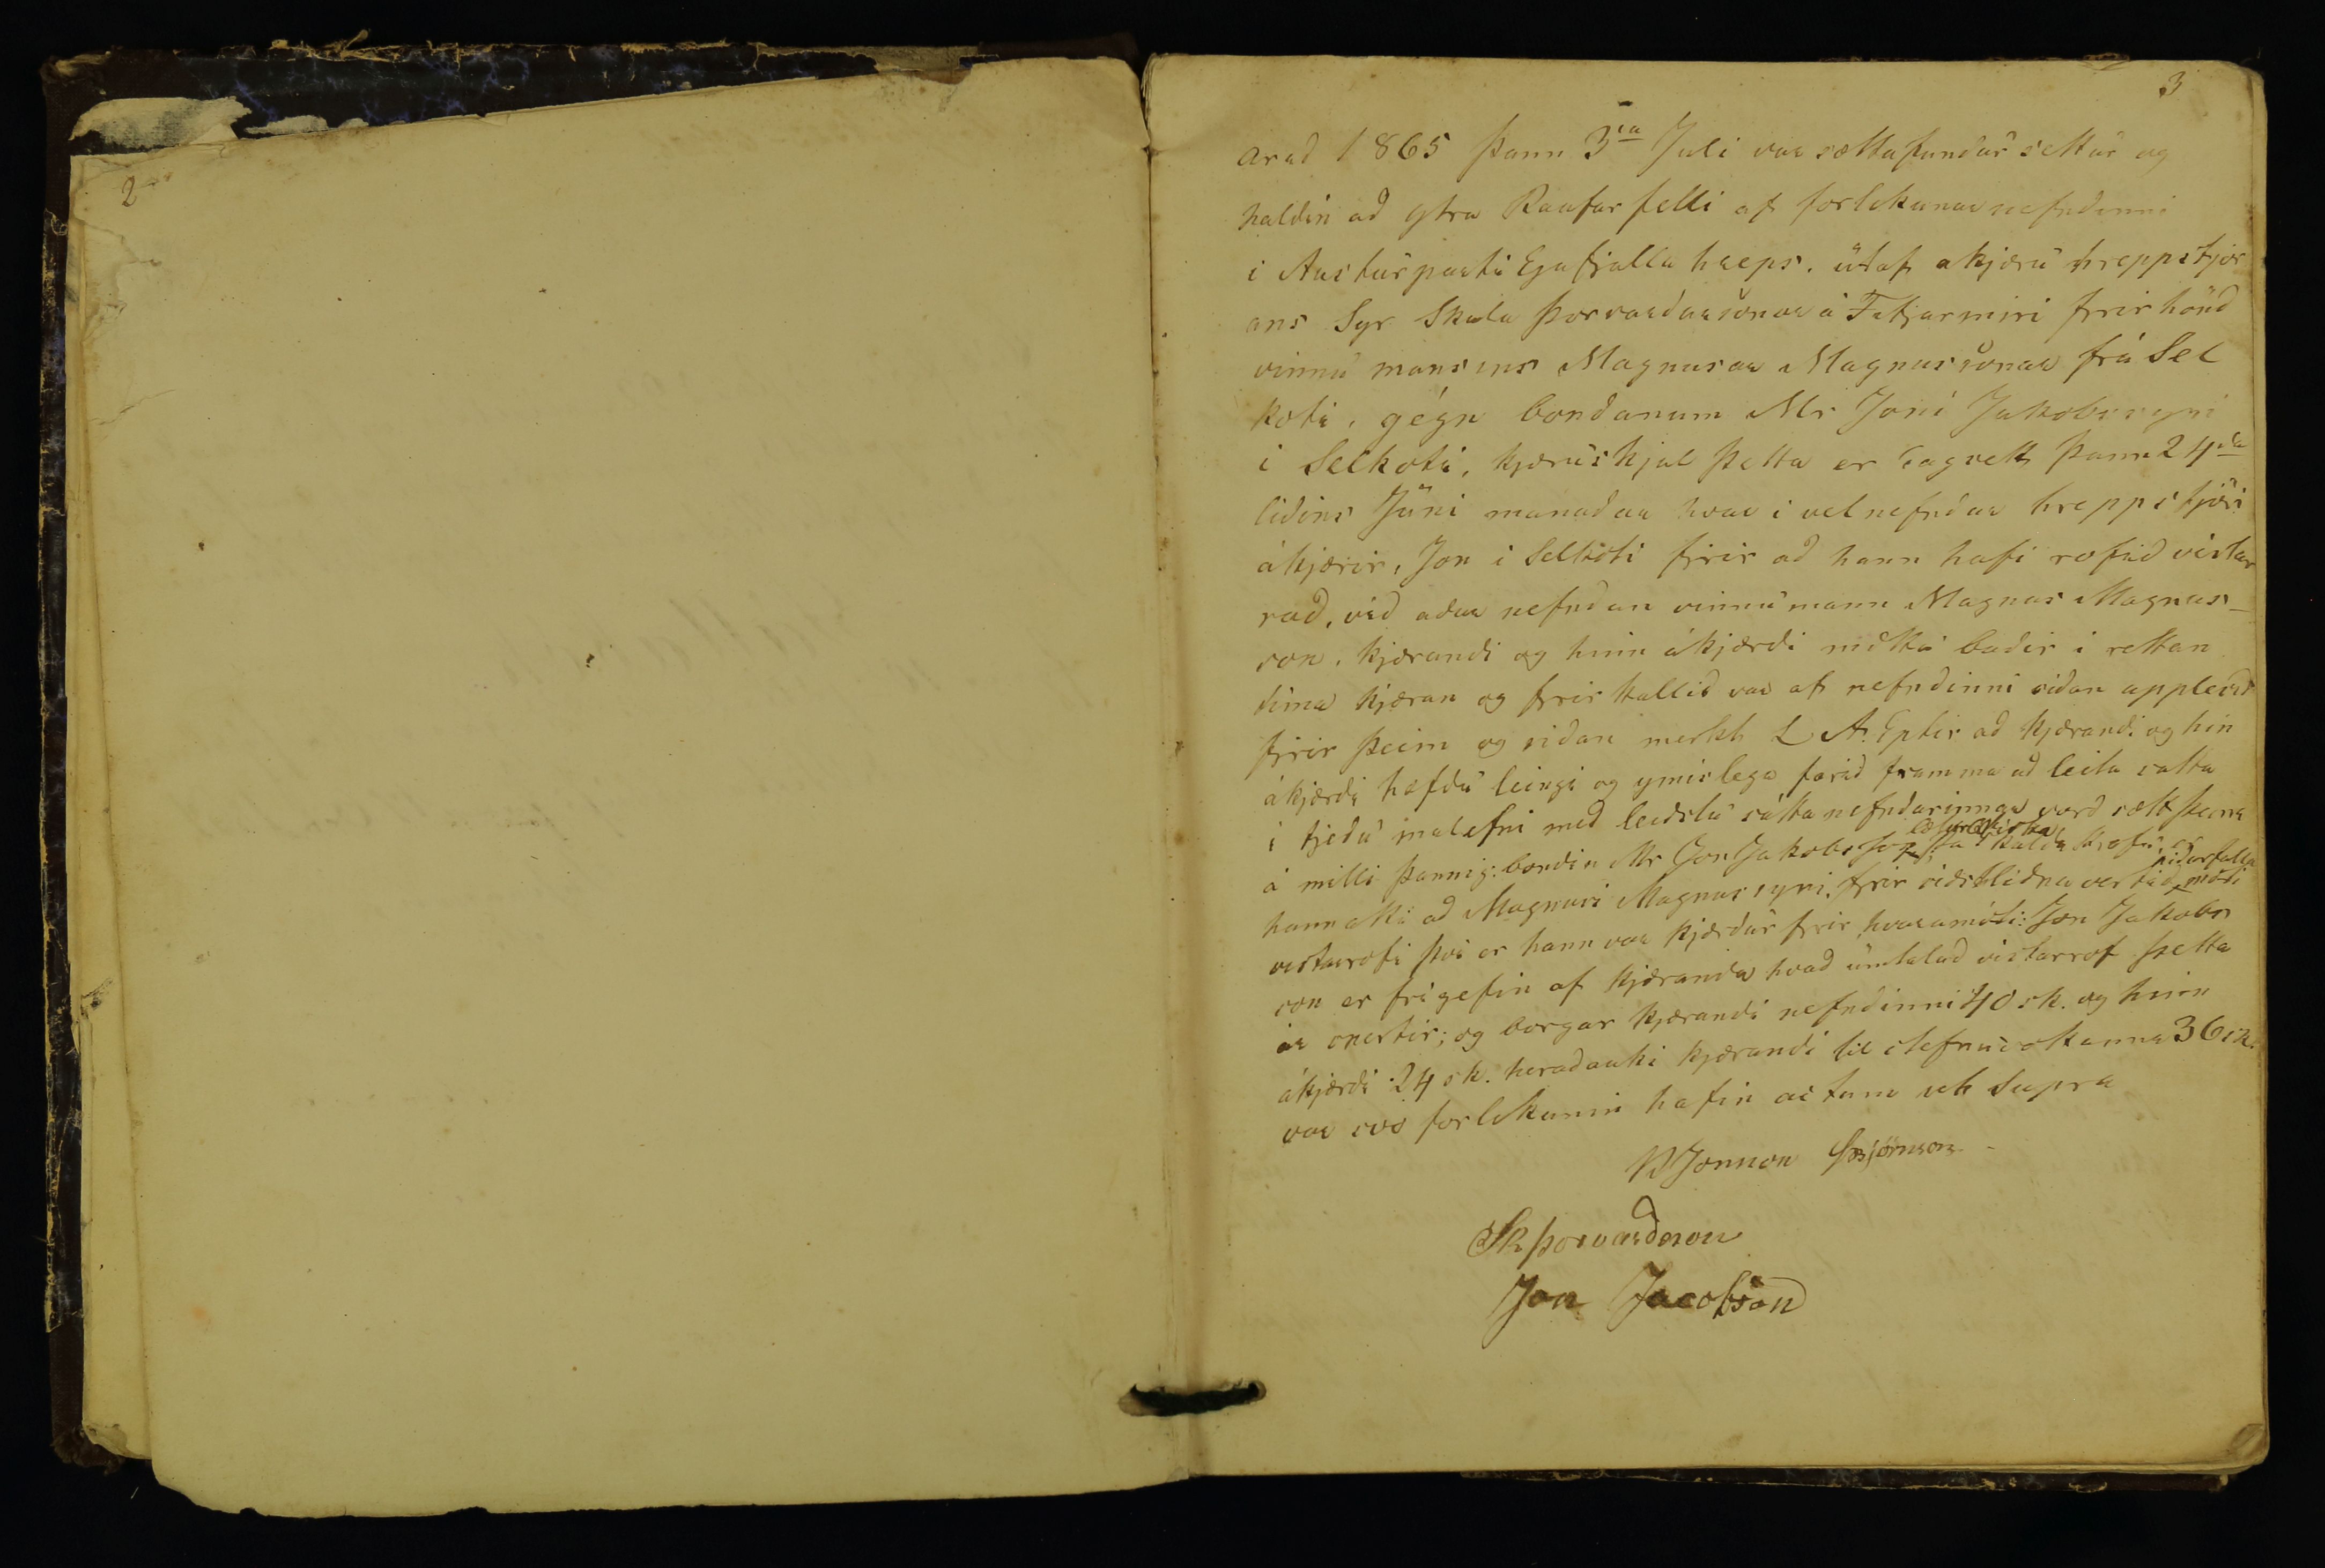 2
3
arað 1865 Þann 3ia Juli var sættafundur settur og
haldin að ytra Raufarfelli af forlikunar nefndinni
i Austurparti Eyafjalla hreps. útaf akjæru hreppstjór
ans Syr Skula Þorvardarsonar á Fitjarmiri firir hönd
vinnu mansins Magnusar Magnussonar frá Sel
koti, gégn bondanum Mr Joni Jakobssyni
i Selkoti, kjæruskjal þetta er dagsett þann 24da
liðins Júni manaðar hvar i vel nefndur hreppstjóri
ákjærir, Jon i Selkoti firir að hann hafi rofið vistar
rað, við aður nefndan vinnumann Magnus Magnus-
son. kjærandi og hinn ákjærdi mættu baðir i rettan
tima kjæran og firirkallið var af nefndinni siðan upplesið
firir þeim og siðan merkt L A. Eptir að kjærandi og hin
ákjærdi hæfdu leingi og ymislega farið framm a að leita satta
i tjeðu malefni með leidslu sáttanefndarinnar varð sætt þeirra
á milli þannig: bondin Mr Jon Jakobsson
hann atti að Magnusi Magnussyni, firir siðstliðna vertið móti niðurfalla
vistarrofi þvi er hann var kjærdur firir, hvar amóti: Jon Jakobs
son er frigefin af kjæranda hvað umtalað vistarrof þetta
ár snertir; og borgar kjærandi nefndinni 40 sk. og hinn
ákjærdi 24 sk. heradauki kjærandi til stefnuvottanna 36 sk.
var svo forlikunin hafin actum ut supra
Jonnson
Sk Þorvardsson
Jon Jacobson